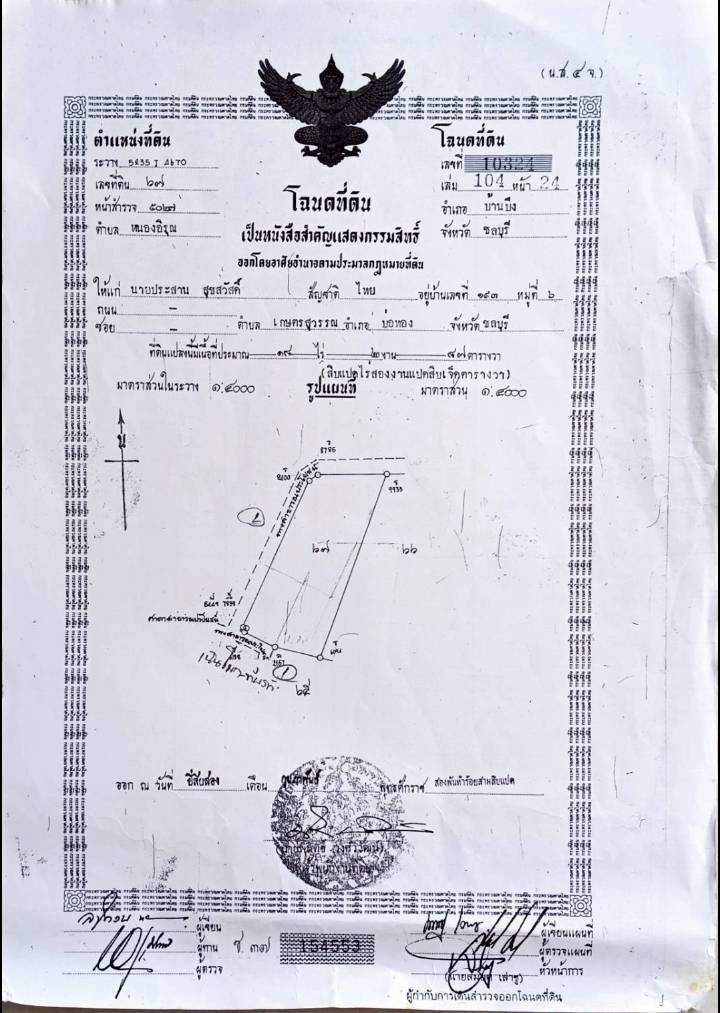 (น.ส. ๔ จ.)
ตำแหน่งที่ดิน
ระวาง 5235 I
เลขที่ดิน ๖๗
หน้าสำรวจ ๕๐๒๗
ตำบล หนองอิรุณ
โฉนดที่ดิน
เลขที่ 10324
เล่ม 104 หน้า 24
อำเภอ บ้านบึง
จังหวัด ชลบุรี
โฉนดที่ดิน
เป็นหนังสือสำคัญแสดงกรรมสิทธิ์
ออกโดยอาศัยอำนาจตามประมวลกฎหมายที่ดิน
ให้แก่ นายประสาน สุขสวัสดิ์ สัญชาติ ไทย อยู่บ้านเลขที่ ๑๙๓ หมู่ที่ ๖
ถนน –
ซอย – ตำบล เกษตรสุวรรณ อำเภอ บ่อทอง จังหวัด ชลบุรี
ที่ดินแปลงนี้มีเนื้อที่ประมาณ ๑๘ ไร่ ๒ งาน ๘๗ ตารางวา
(สิบแปดไร่สองงานแปดสิบเจ็ดตารางวา)
มาตราส่วนในระวาง ๑:๔๐๐๐ รูปแผนที่ มาตราส่วน ๑:๔๐๐๐
น
ทางสาธารณประโยชน์
๖๗
๖๖
๖๕
ออก ณ วันที่ ยี่สิบสอง เดือน กุมภาพันธ์ พุทธศักราช สองพันห้าร้อยสามสิบแปด
ผู้เขียน
ผู้ทาน
ผู้ตรวจ
ช. ๓๗ 154553
ผู้เขียนแผนที่
ผู้ตรวจแผนที่
หัวหน้าการ
ผู้กำกับการเดินสำรวจออกโฉนดที่ดิน